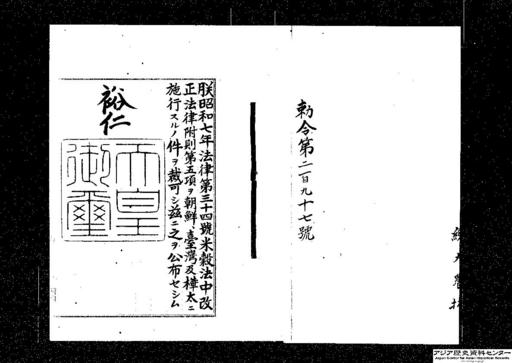 勅令第二百九十七號
朕昭和七年法律第三十四號米穀法中改
正法律附則第五項ヲ朝鮮、臺灣及樺太ニ
施行スルノ件ヲ裁可シ茲ニ之ヲ公布セシム
裕仁
天皇
御璽
アジア歴史資料センター
Japan Center for Asian Historical Records